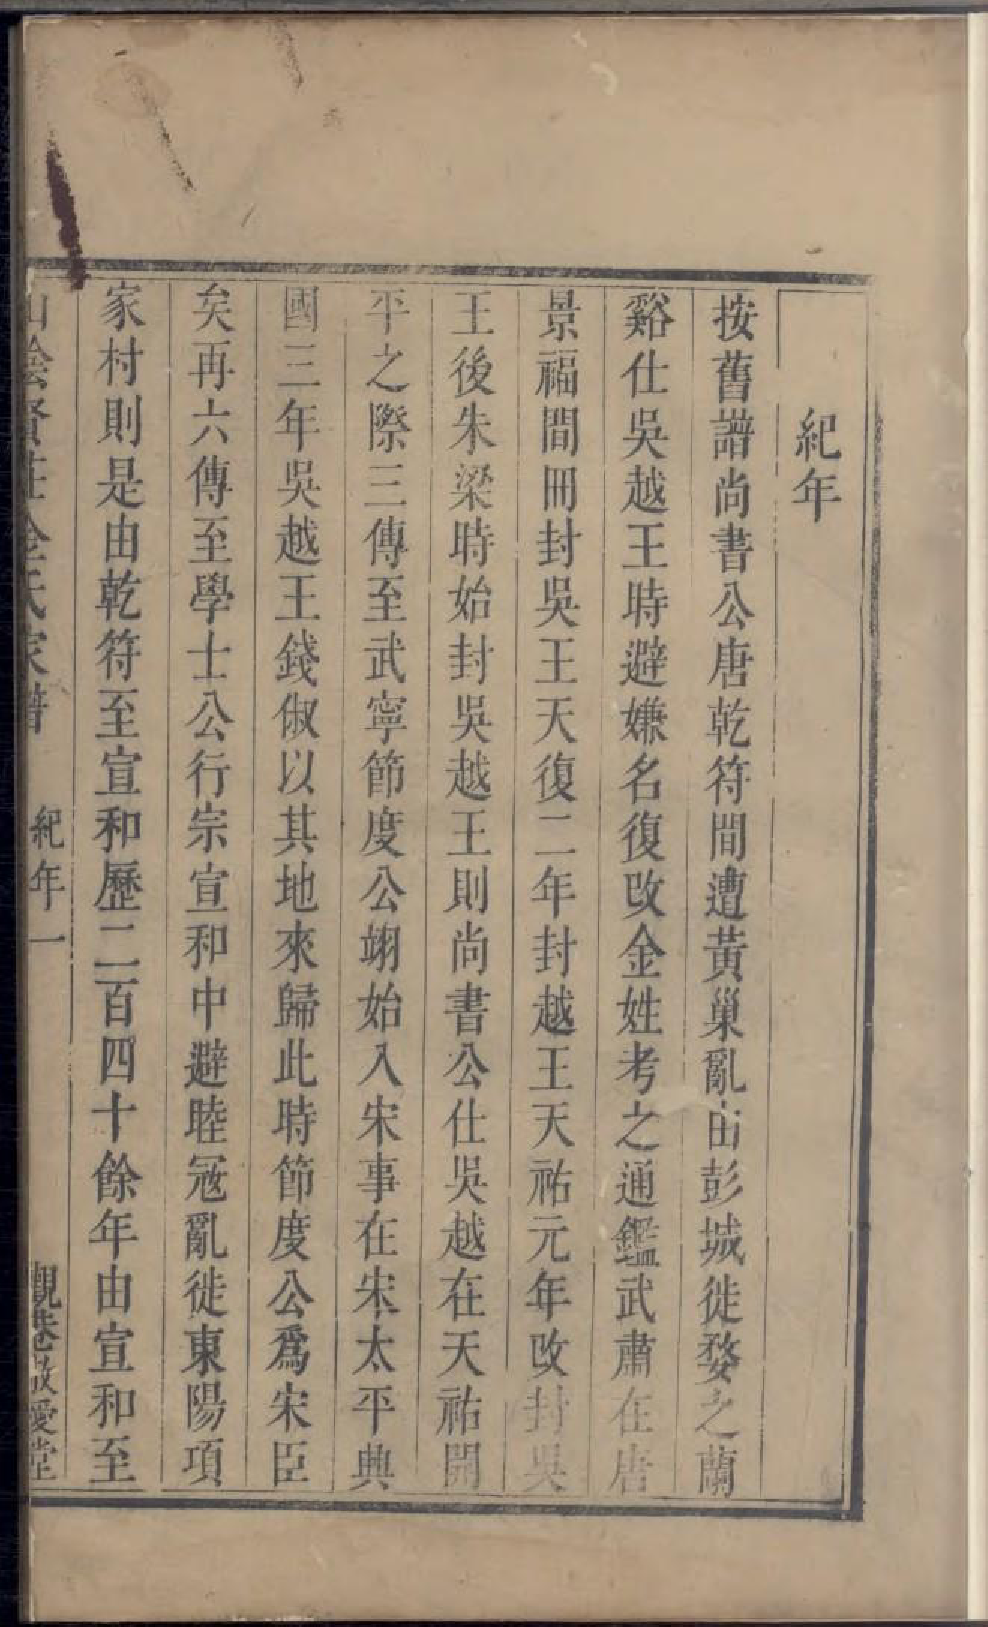 紀年
按舊譜尚書公唐乾符間遭黃巢亂由彭城徙婺之蘭
谿仕吳越王時避嫌名復改金姓考之通鑑武肅在唐
景福間冊封吳王天復二年封越王天祐元年改封吳
王後朱梁時始封吳越王則尚書公仕吳越在天祐開
平之際三傳至武寧節度公翊始入宋事在宋太平典
國三年吳越王錢俶以其地來歸此時節度公爲宋臣
矣再六傳至學士公行宗宣和中避睦冦亂徙東陽項
家村則是由乾符至宣和歷二百四十餘年由宣和至
山陰賢莊金氏家譜 紀年 一 觀巷敬愛堂